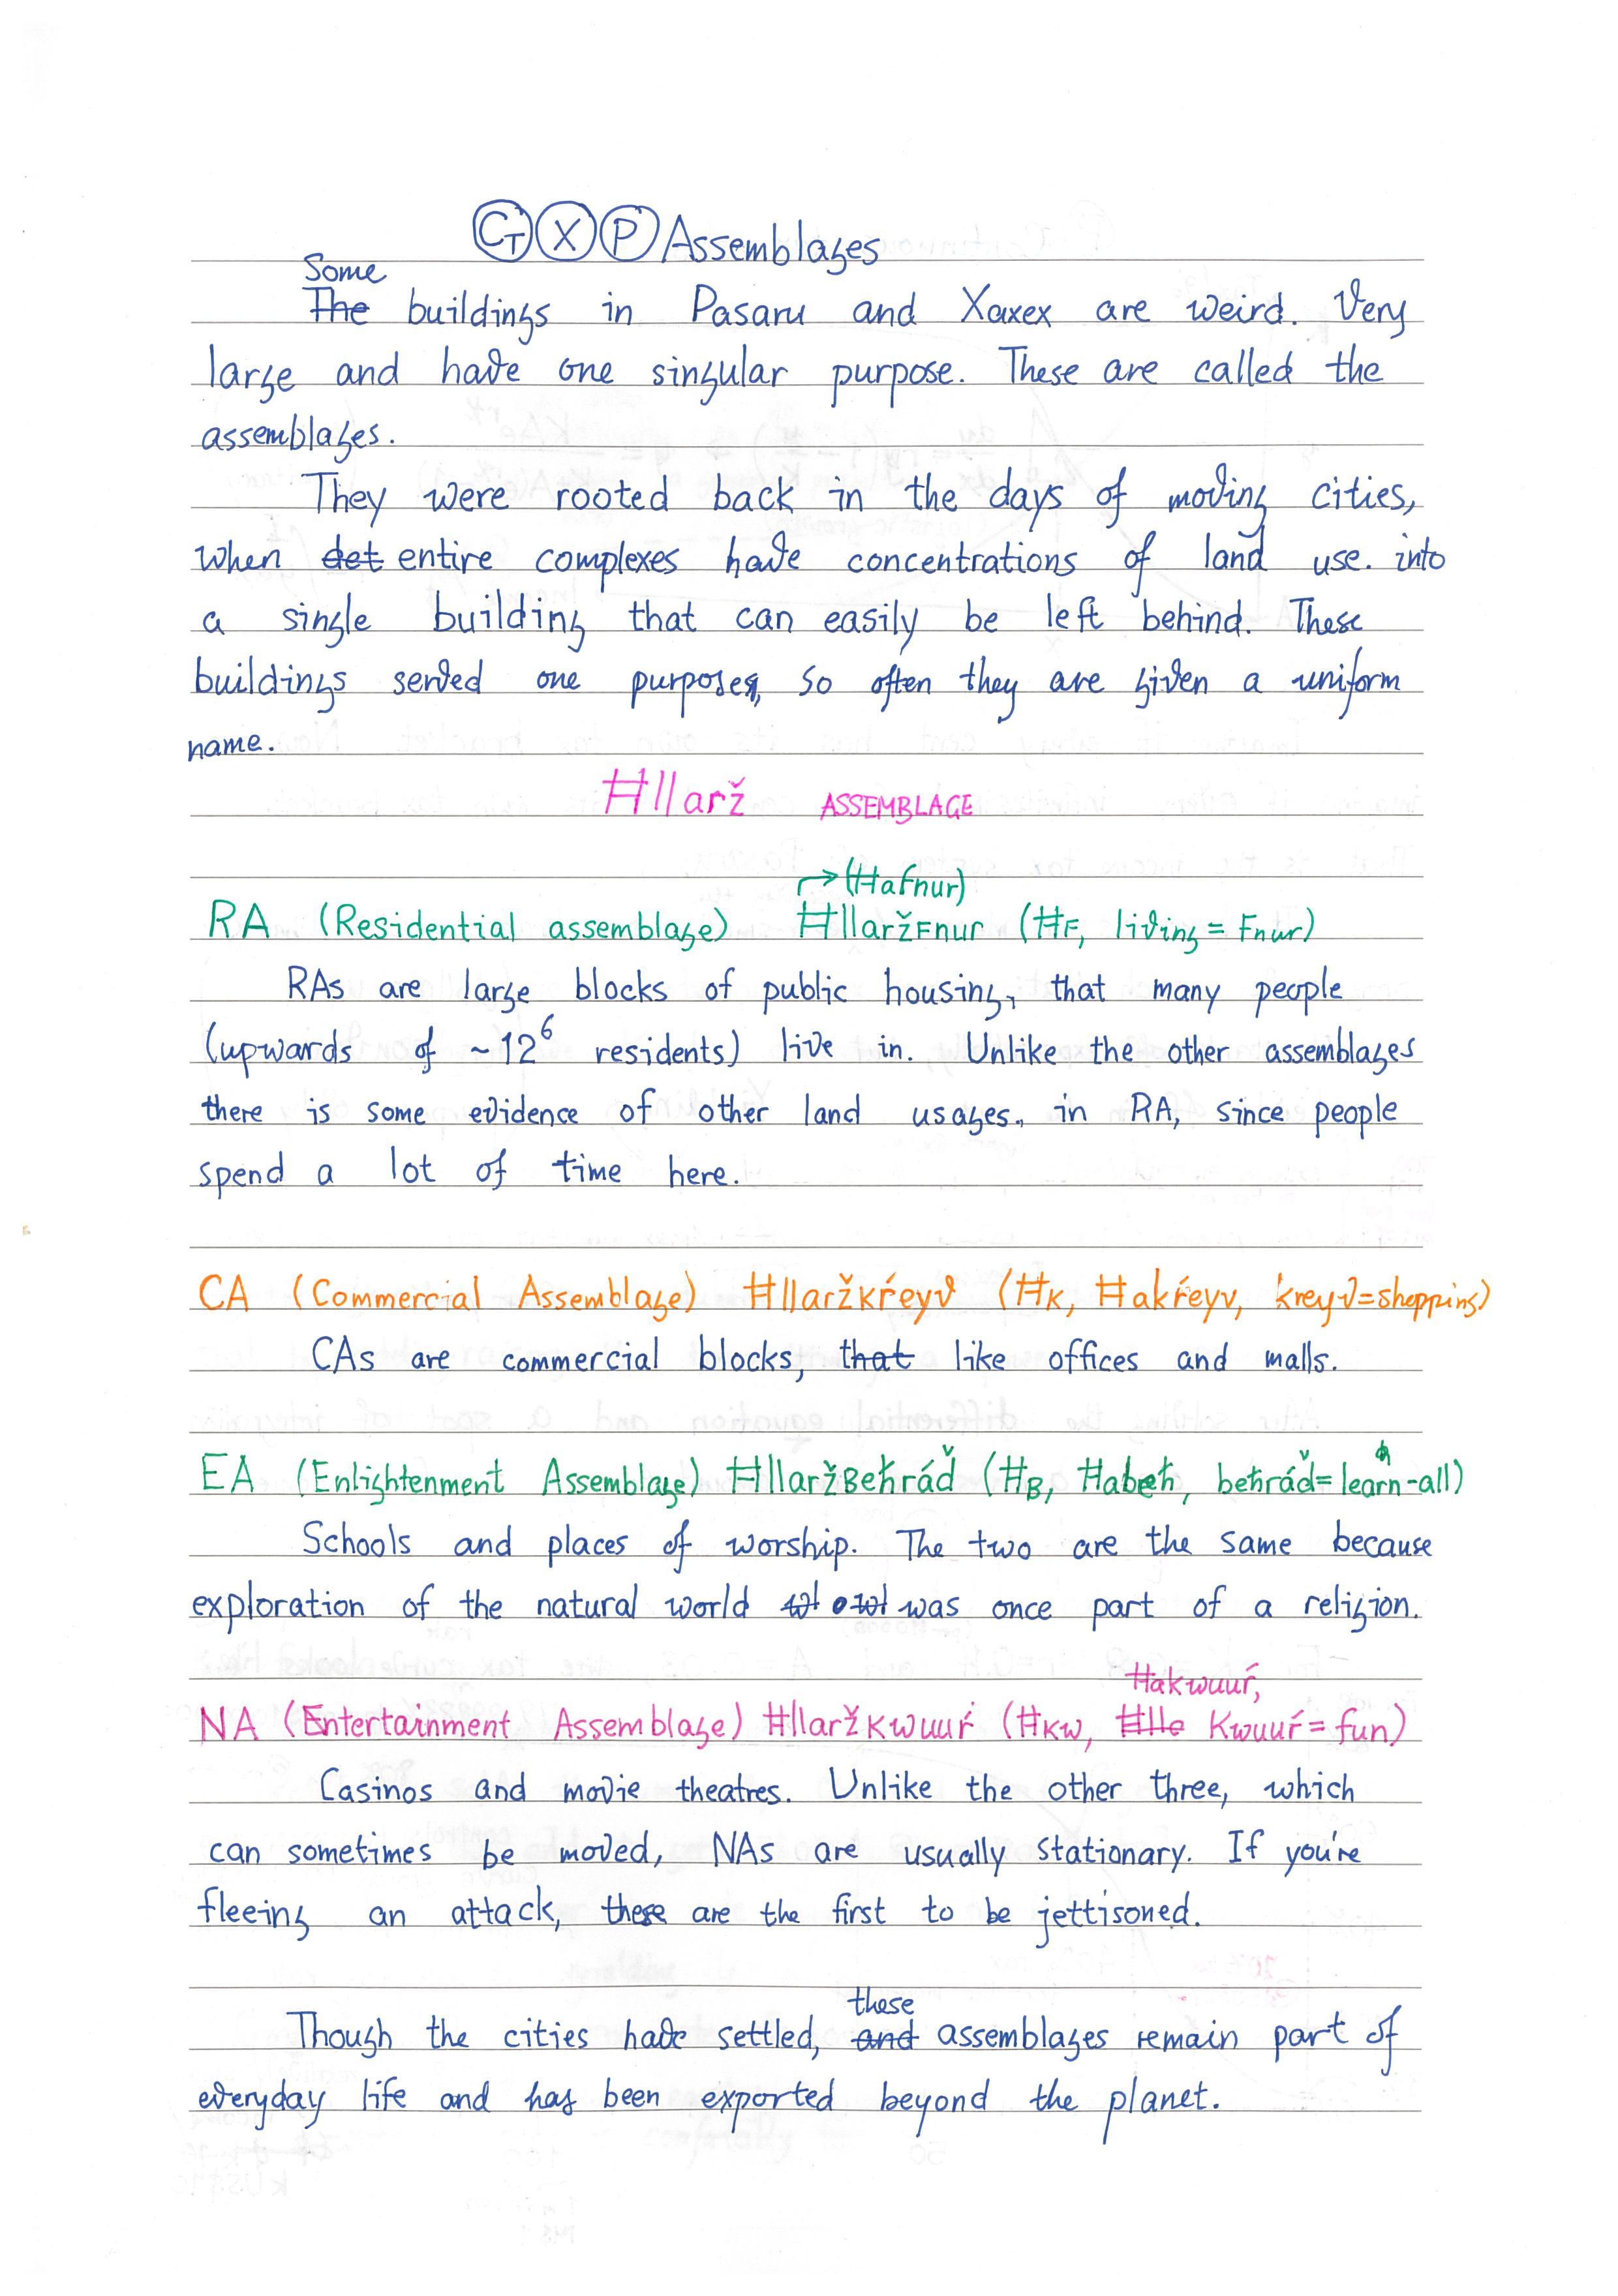 CT X P Assemblages
Some
The buildings in Pasaru and Xaxex are weird. Very
large and have one singular purpose. These are called the
assemblages.
They were rooted back in the days of moving cities,
when det entire complexes have concentrations of land use. into
a single building that can easily be left behind. These
buildings served one purpose, so often they are given a uniform
name.
Ħllarž ASSEMBLAGE
→(Ħafnur)
RA (Residential assemblage) ĦllaržFnur (ĦF, living = Fnur)
RAs are large blocks of public housing, that many people
(upwards of ~12⁶ residents) live in. Unlike the other assemblages
there is some evidence of other land usages. in RA, since people
spend a lot of time here.
CA (Commercial Assemblage) Ħllaržkŕeyv (ĦK, Ħakŕeyv, kreyv=shopping)
CAs are commercial blocks, that like offices and malls.
EA (Enlightenment Assemblage) ĦllaržBeħráď (ĦB, Ħabeħ, beħráď=learn-all)
Schools and places of worship. The two are the same because
exploration of the natural world was once part of a religion.
Ħakwuuŕ,
NA (Entertainment Assemblage) Ħllaržkwuuŕ (ĦKW, Ħlle Kwuuŕ = fun)
Casinos and movie theatres. Unlike the other three, which
can sometimes be moved, NAs are usually stationary. If you're
fleeing an attack, these are the first to be jettisoned.
these
Though the cities have settled, and assemblages remain part of
everyday life and has been exported beyond the planet.